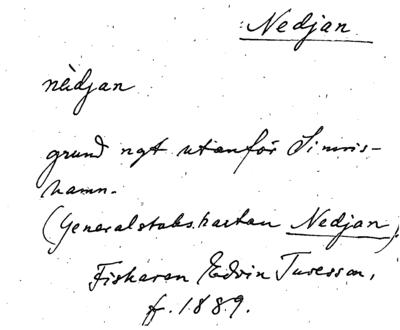 Nedjan
nèdjan
grund ngt utanför Simris-
hamn.
(Generalstabs.kartan Nedjan)
Fiskaren Edvin Turesson,
f. 1889.